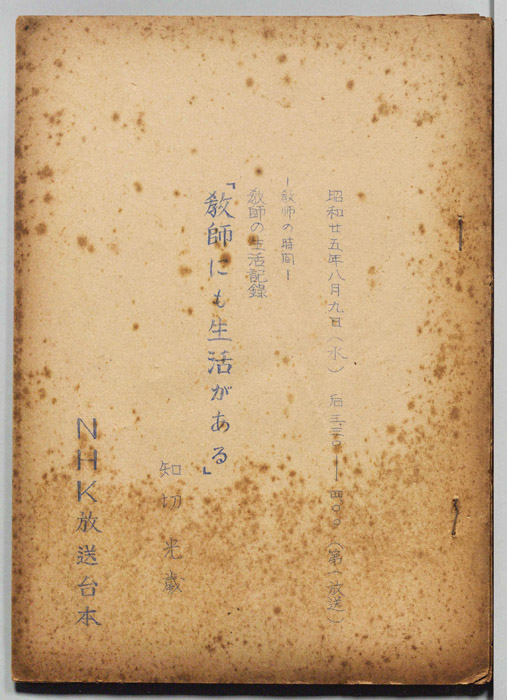 昭和廿五年八月九日(水) 后三、三〇——四、〇〇(第一放送)
―教師の時間―
教師の生活記録
「教師にも生活がある」
知切光歳
NHK放送台本